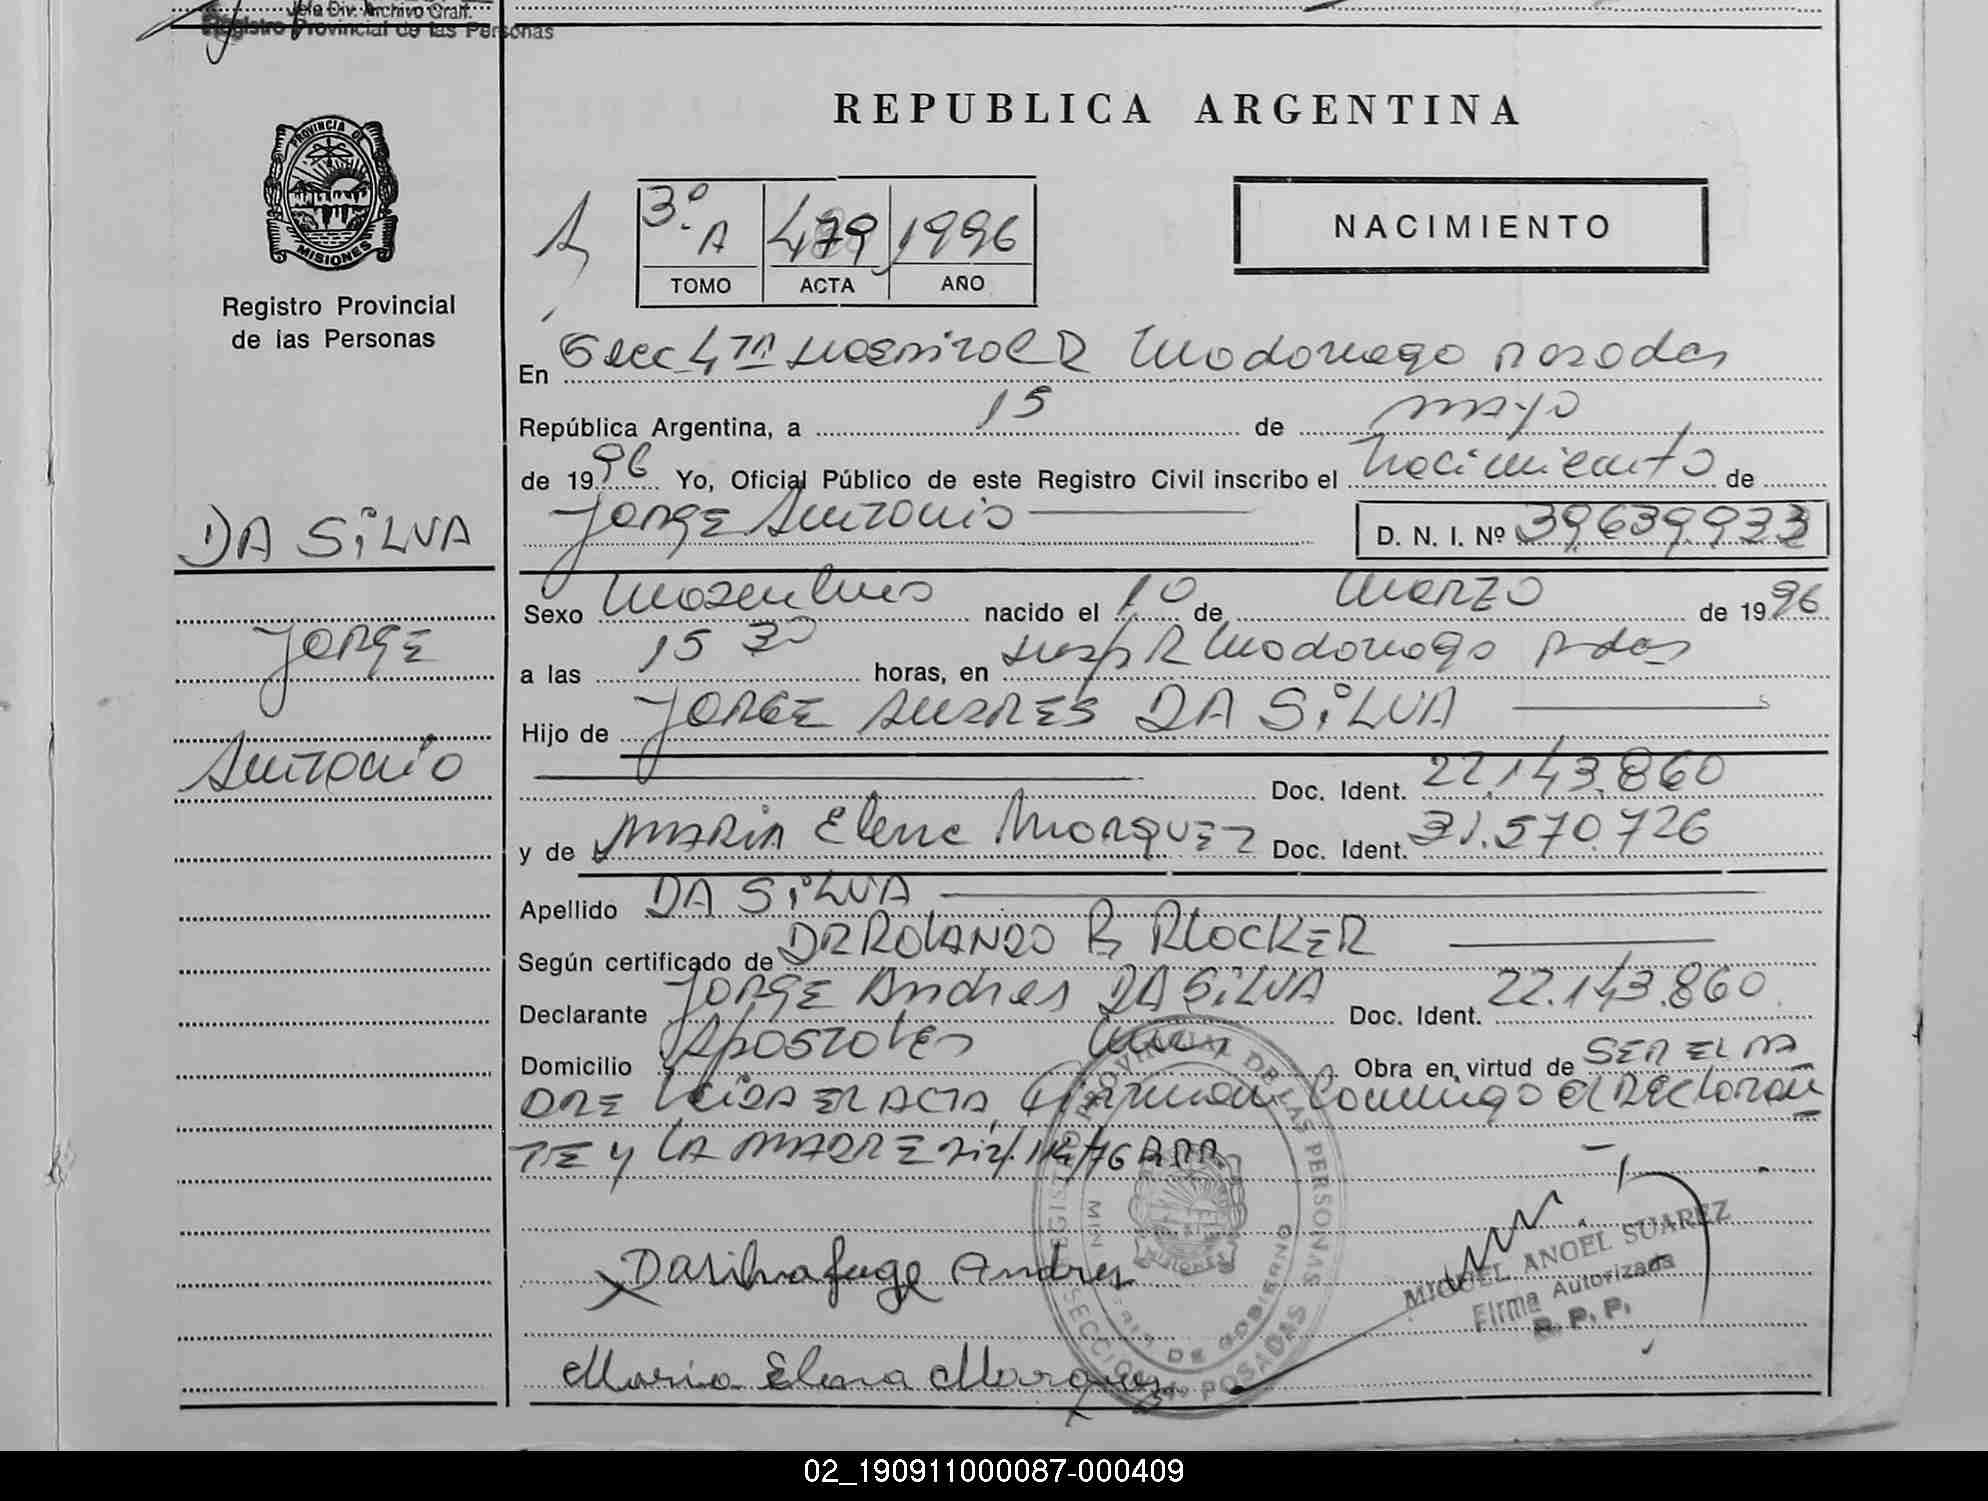 Jefa Div. Archivo Gral.
Registro Provincial de las Personas
PROVINCIA DE
MISIONES
Registro Provincial
de las Personas
REPUBLICA ARGENTINA
3º A 479 1996
TOMO ACTA AÑO
NACIMIENTO
En Secc 4TA Hospital R Madariaga Posadas
República Argentina, a 15 de mayo
de 1996 Yo, Oficial Público de este Registro Civil inscribo el Nacimiento de
Jorge Antonio D. N. I. Nº 39639933
DA SiLVA
Jorge
Antonio
Sexo Masculino nacido el 10 de Marzo de 1996
a las 15 30 horas, en Hosp R Madariaga Pdas
Hijo de JORGE ANDRES DA SiLVA
Doc. Ident. 22.143.860
y de MARIA Elena Marquez Doc. Ident. 31.570.726
Apellido DA SiLVA
Según certificado de DR ROLANDO R. KLOCKER
Declarante JORGE Andres DA SiLVA Doc. Ident. 22.143.860
Domicilio Apostoles Mnes Obra en virtud de SER EL PA
DRE Leida EL ACTA Firman Conmigo el Declaran
TE y LA MADRE
Da Silva Jorge Andres
Maria Elena Marquez
REGISTRO PROVINCIAL DE LAS PERSONAS
MINISTERIO DE GOBIERNO
SECCION 4º POSADAS
MIGUEL ANGEL SUAREZ
Firma Autorizada
R. P. P.
02_190911000087-000409